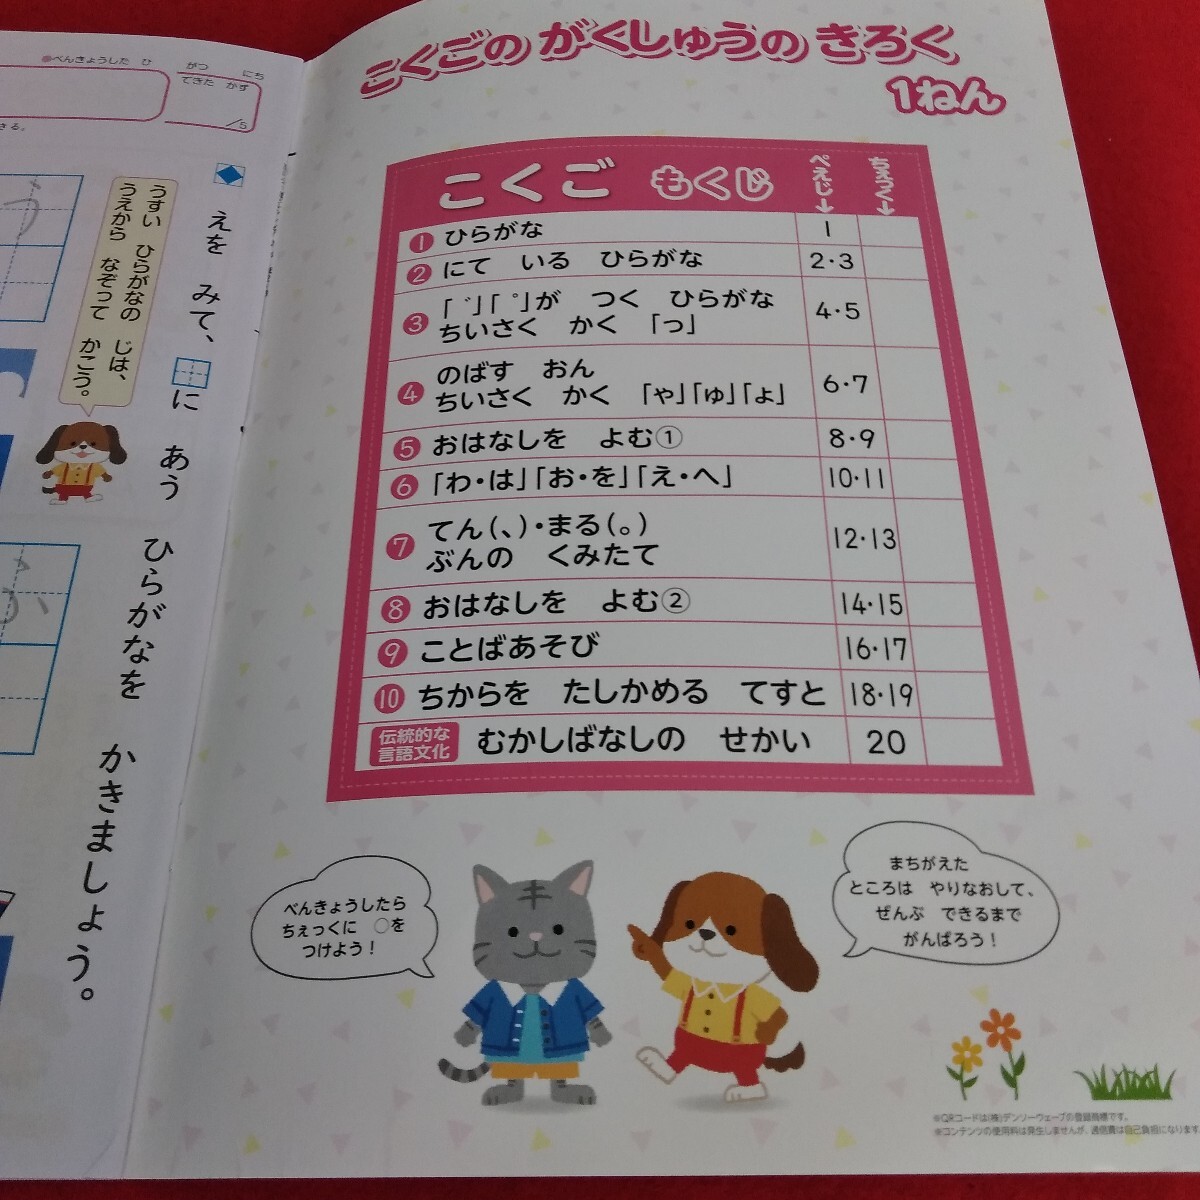 こくごの がくしゅうの きろく
1ねん
こくご もくじ ぺえじ→ ちぇっく→
1 ひらがな 1
2 にて いる ひらがな 2・3
3 「゛」「゜」が つく ひらがな
ちいさく かく 「っ」 4・5
4 のばす おん
ちいさく かく 「ゃ」「ゅ」「ょ」 6・7
5 おはなしを よむ① 8・9
6 「わ・は」「お・を」「え・へ」 10・11
7 てん(、)・まる(。)
ぶんの くみたて 12・13
8 おはなしを よむ② 14・15
9 ことばあそび 16・17
10 ちからを たしかめる てすと 18・19
伝統的な
言語文化
むかしばなしの せかい 20
べんきょうしたら
ちぇっくに ○を
つけよう！
まちがえた
ところは やりなおして、
ぜんぶ できるまで
がんばろう！
※QRコードは(株)デンソーウェーブの登録商標です。
※コンテンツの使用料は発生しませんが、通信費は自己負担になります
●べんきょうした ひ がつ にち
できた かず
/5
きる。
えを みて、 に あう ひらがなを かきましょう。
うすい ひらがなの じは、
うえから なぞって かこう。
う